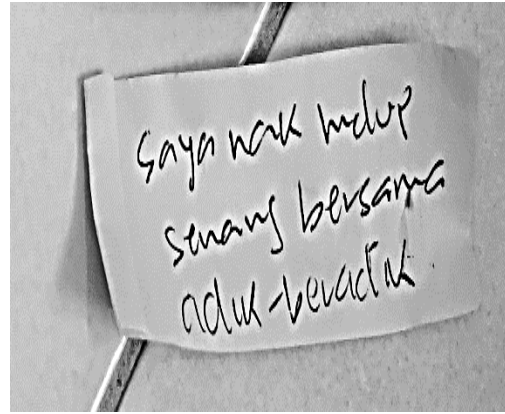 Saya nak hidup
senang bersama
adik-beradik.